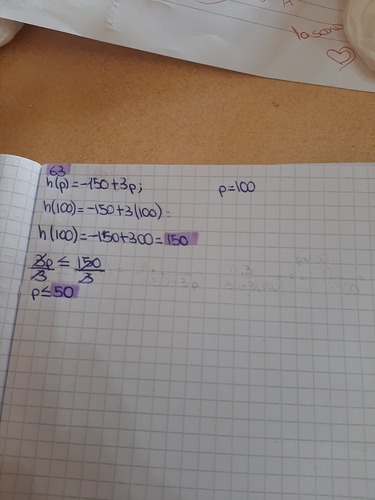 lasana
63
h(p)=-150+3p; p=100
h(100)=-150+3(100)=
h(100)=-150+300=150
3p/3 ≤ 150/3
p≤50